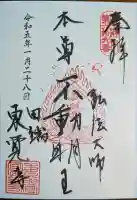 奉拝
弘法大師
本尊不動明王
田端
東覺寺
令和五年一月二十八日